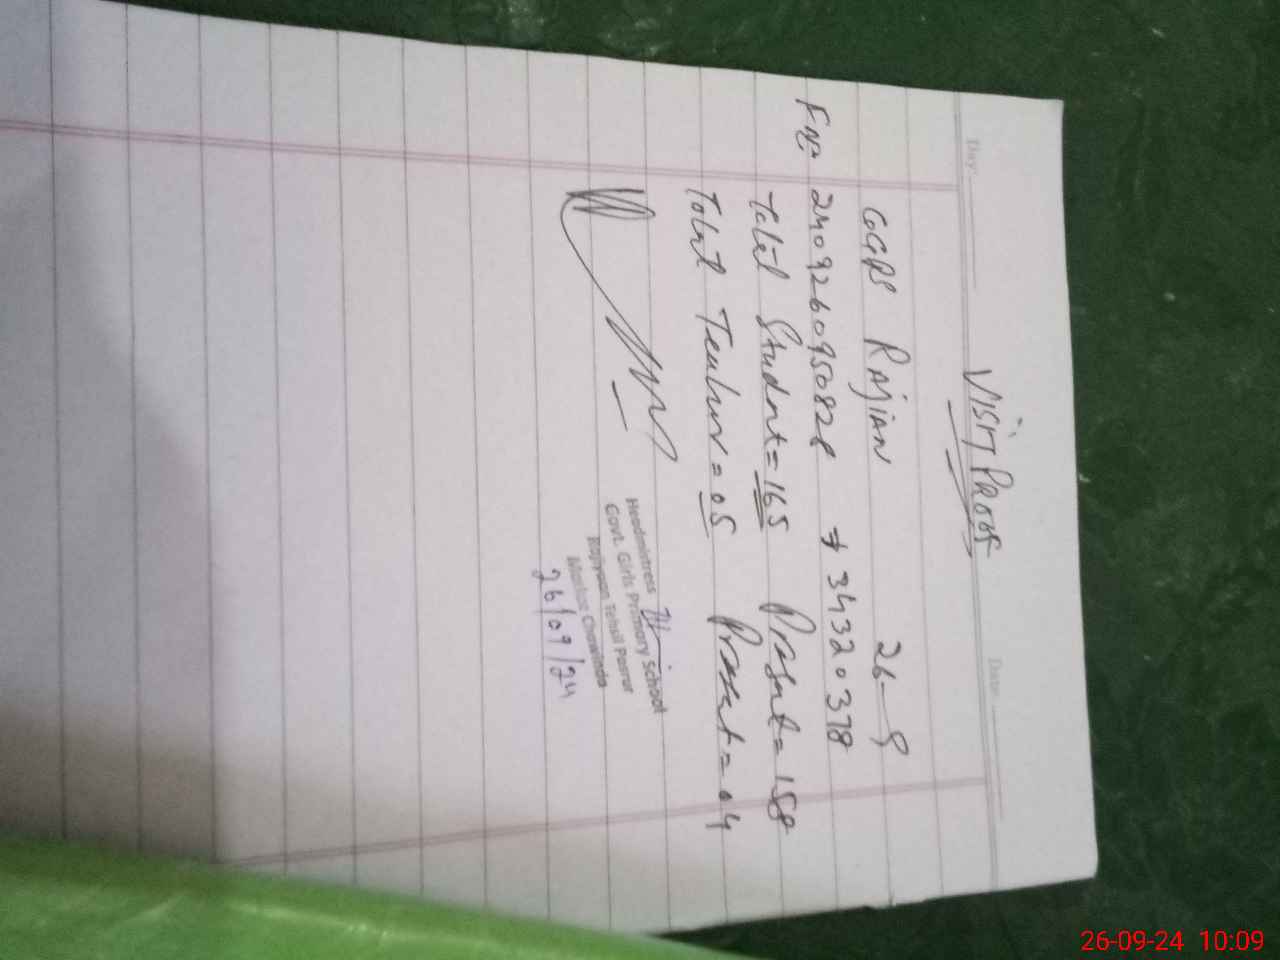 Day:
Date:
VISIT PROOF
GGPS RAJIAN 26-9
FN= 2409260950828 → 34320378
Total Student = 165 Present = 158
Total Teacher = 05 Present = 04
Headmistress
Govt. Girls Primary School
Rajiyaan Tehsil Pasrur
Markaz Chawinda
26/09/24
26-09-24 10:09